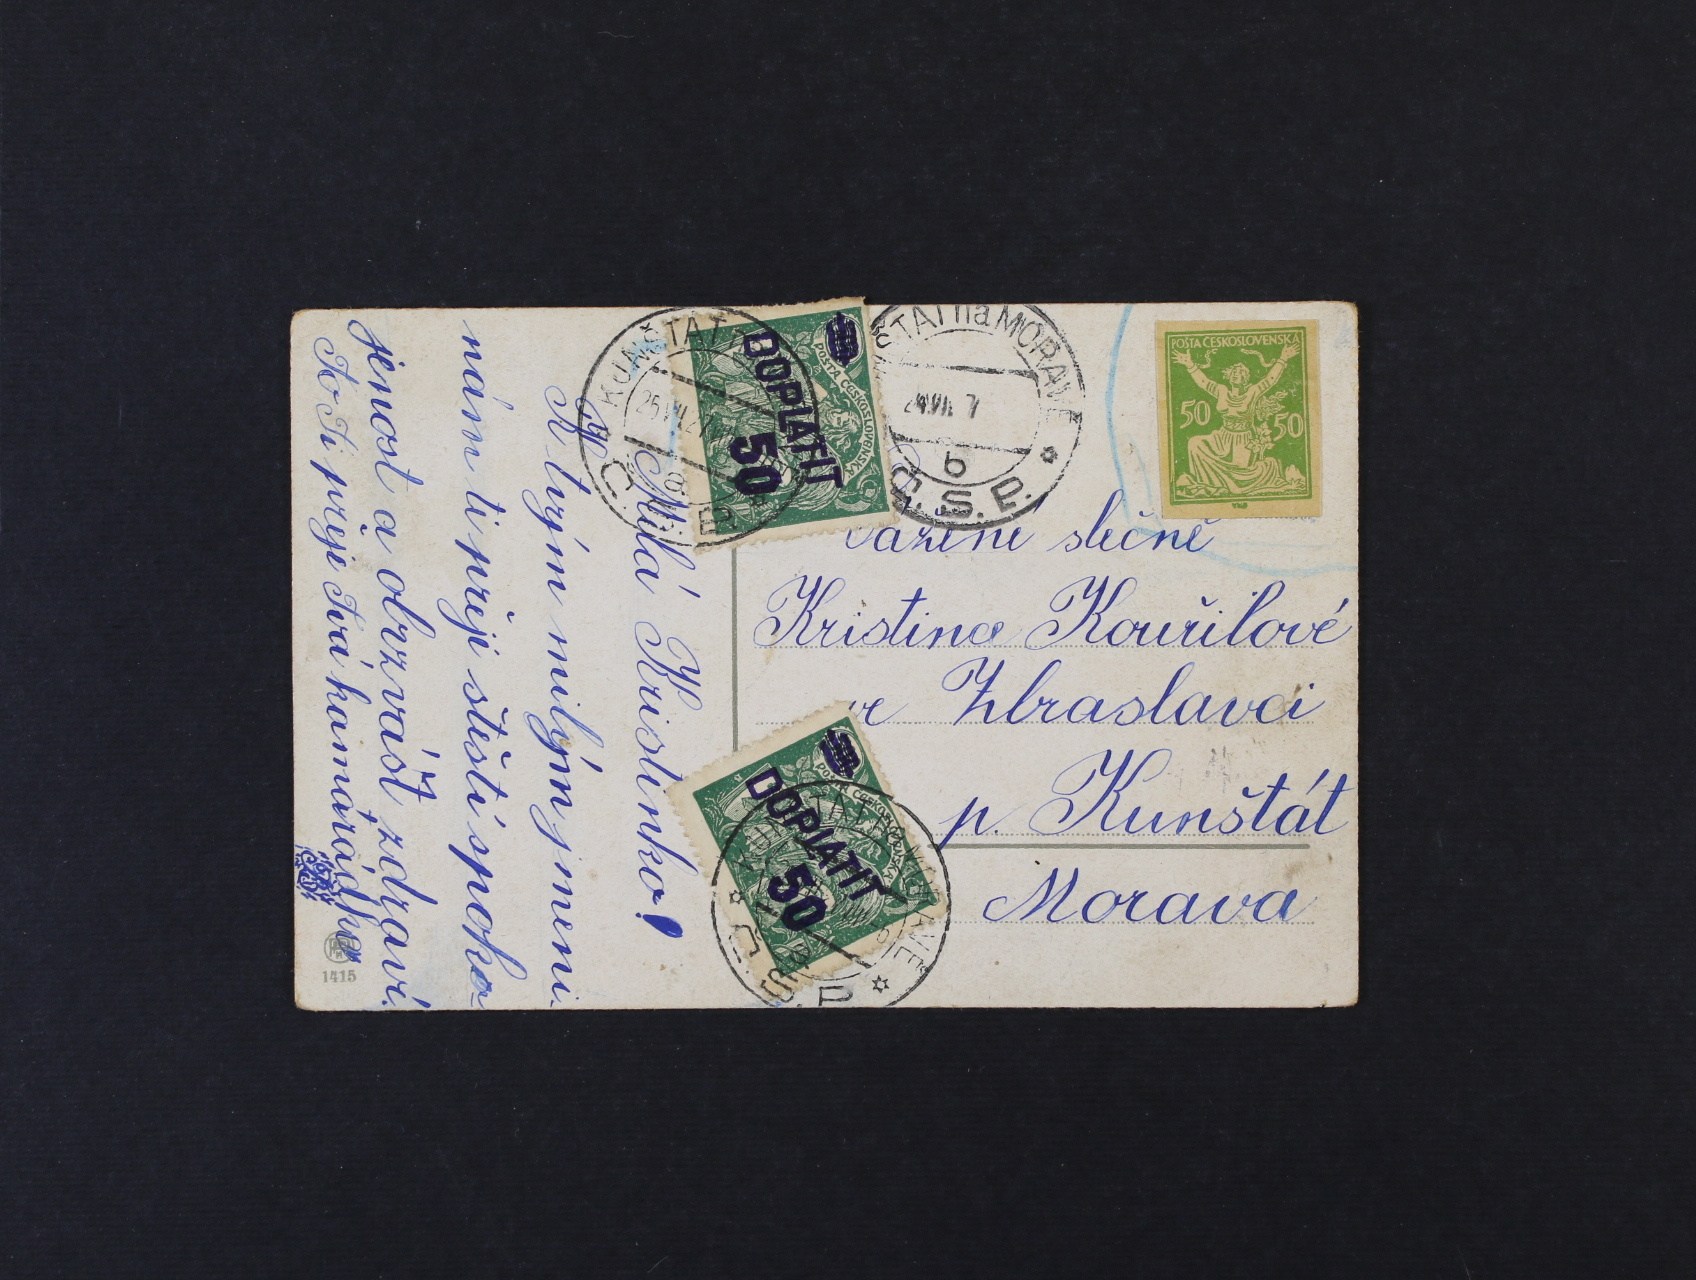 Milá Kristinko!
K tvým milým jmeni
nám ti přeji štěstí spoko-
jenost a obzvášt zdraví.
To Ti přeje Tvá kamarádka
1415
KUNŠTÁT
25.VII.27
a
Č. S. P.
DOPLATIT
50
POŠTA ČESKOSLOVENSKÁ
ŠTÁT na MORAVĚ
24.VII. 7
b
Č. S. P.
POŠTA ČESKOSLOVENSKÁ
50 50
Vážené slečně
Kristina Kouřilové
ve Zbraslavci
p. Kunštát
Morava
DOPLATIT
50
POŠTA ČESKOSLOVENSKÁ
Č. S. P.